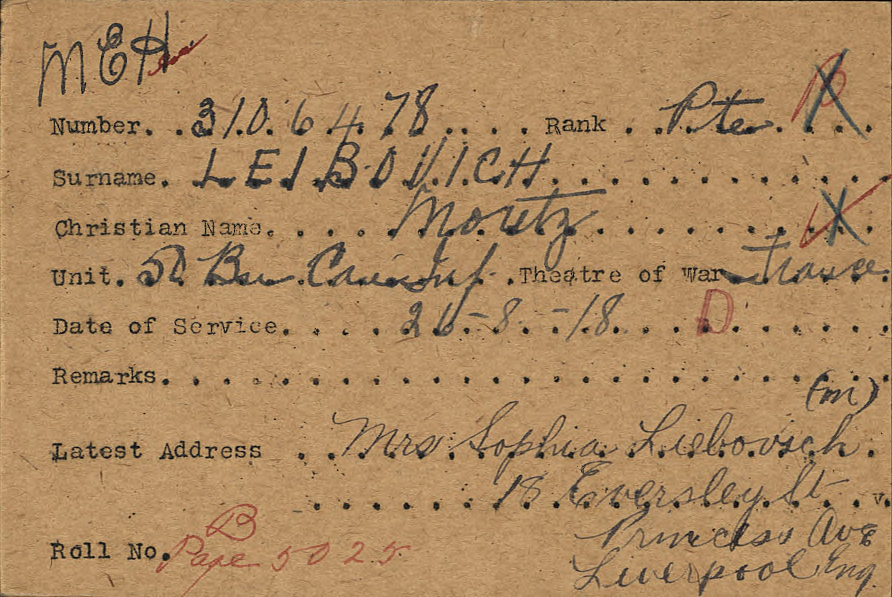 MEH
Number. . 3106478 . . . . Rank . . Pte B X
Surname. LEIBOVICH
Christian Name. . . . Moritz X
Unit. 50 Bn Can Inf. Theatre of War France
Date of Service. . . . 26-8-18 D
Remarks.
(m)
Latest Address . . Mrs Sophia Liebovich
18 Eversley St
Princess Ave
Liverpool Eng
B
Roll No. Page 5025